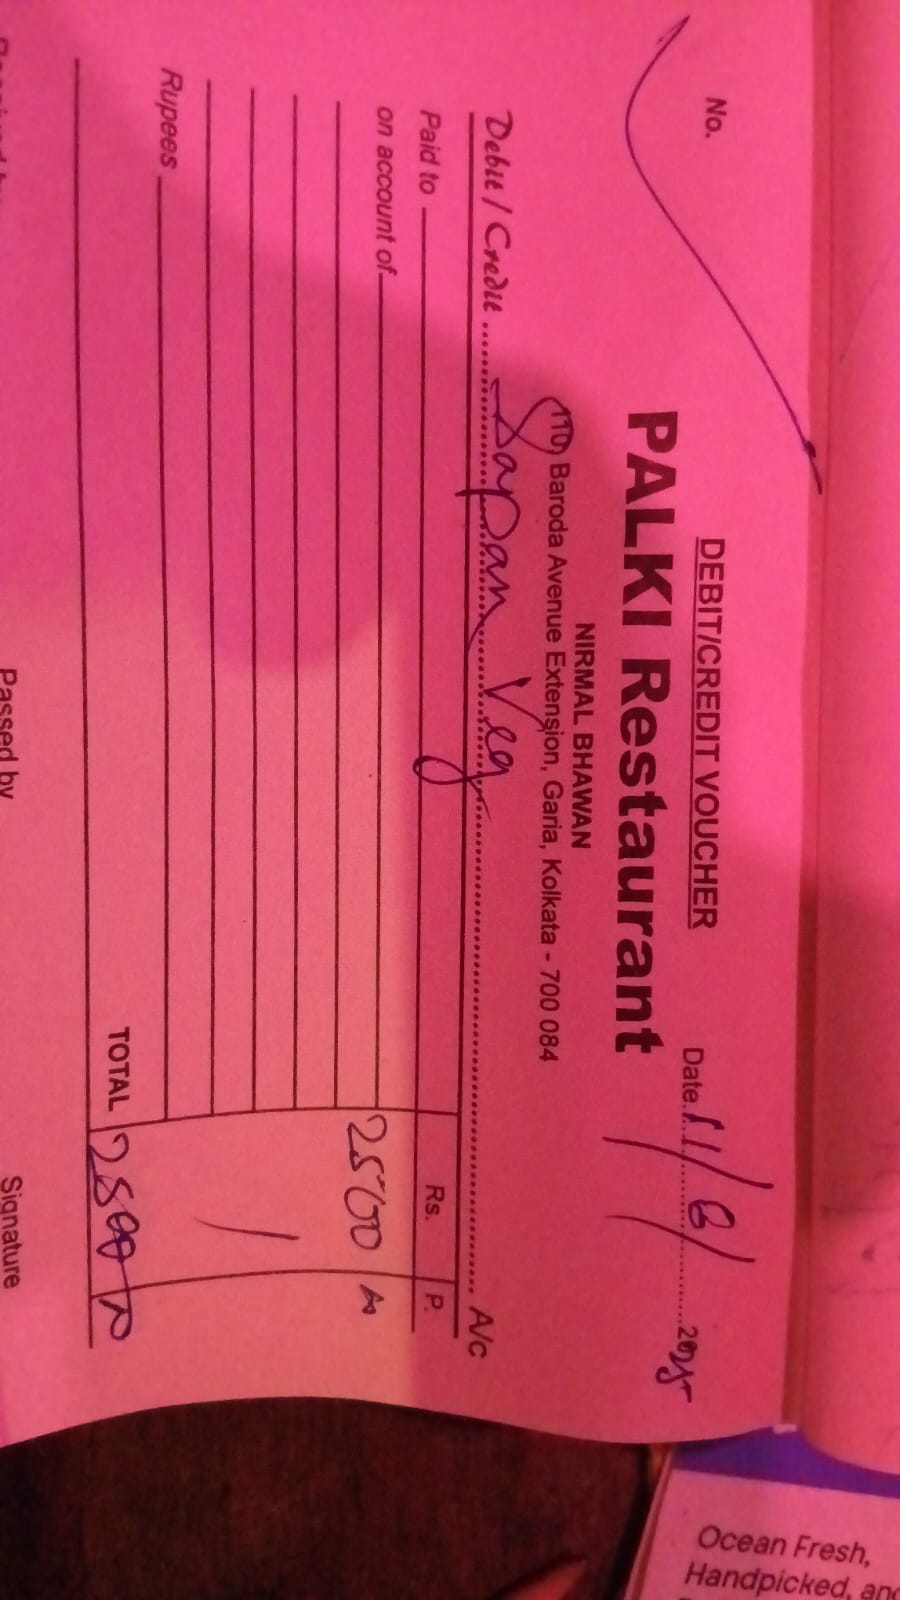 DEBIT/CREDIT VOUCHER
No.
Date. 11/6/ 2025
PALKI Restaurant
NIRMAL BHAWAN
110, Baroda Avenue Extension, Garia, Kolkata - 700 084
Debit / Credit Sapan Veg A/c
Paid to Rs. P.
on account of 2500
Rupees
TOTAL 2500
Passed by
Signature
Ocean Fresh,
Handpicked, and